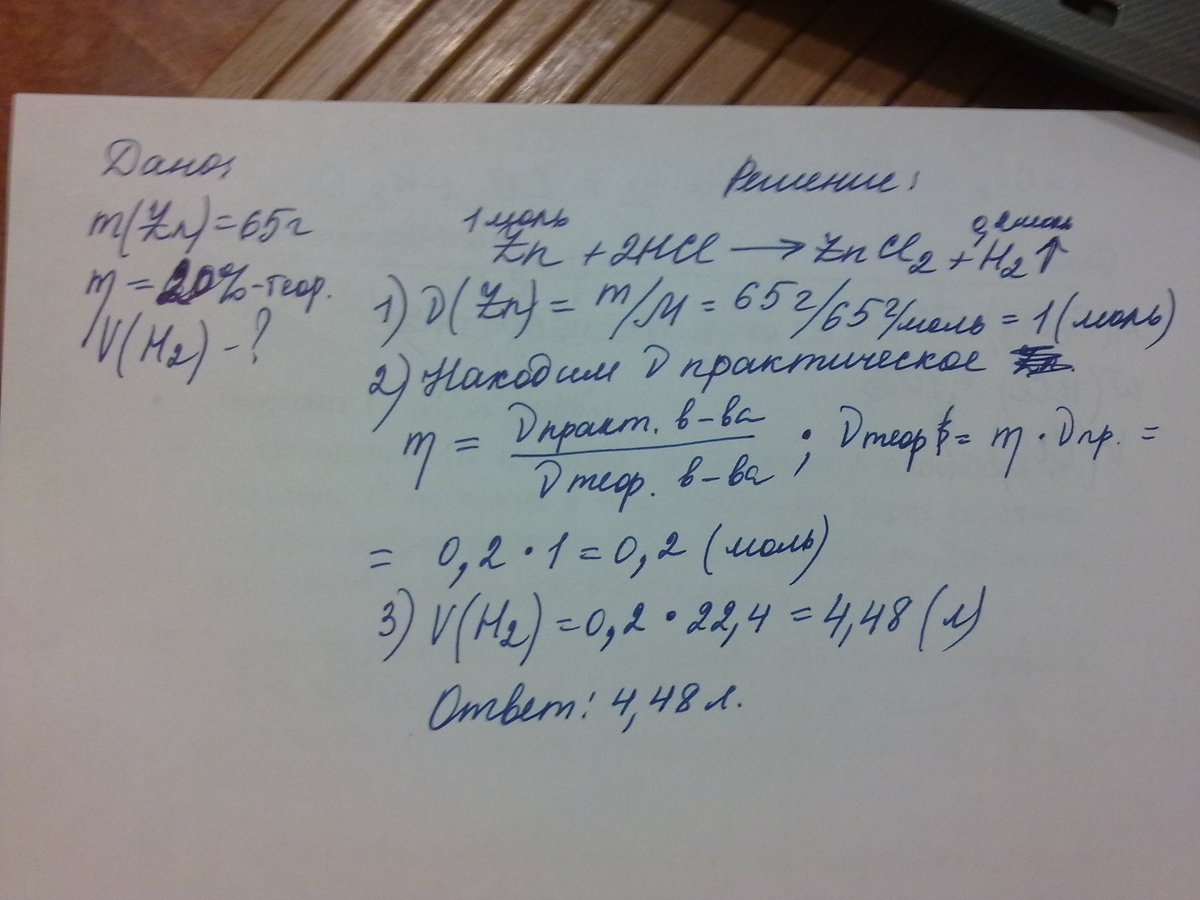 Дано:
m(Zn)=65г
η = 20%-теор.
V(H₂) - ?
Решение:
1 моль
Zn + 2HCl → ZnCl₂ + H₂↑
1) ν(Zn) = m/M = 65г/65г/моль = 1(моль)
2) Находим ν практическое
η = νпракт. в-ва / νтеор. в-ва ; νтеор = η · νпр. =
= 0,2 · 1 = 0,2 (моль)
3) V(H₂) = 0,2 · 22,4 = 4,48 (л)
Ответ: 4,48 л.